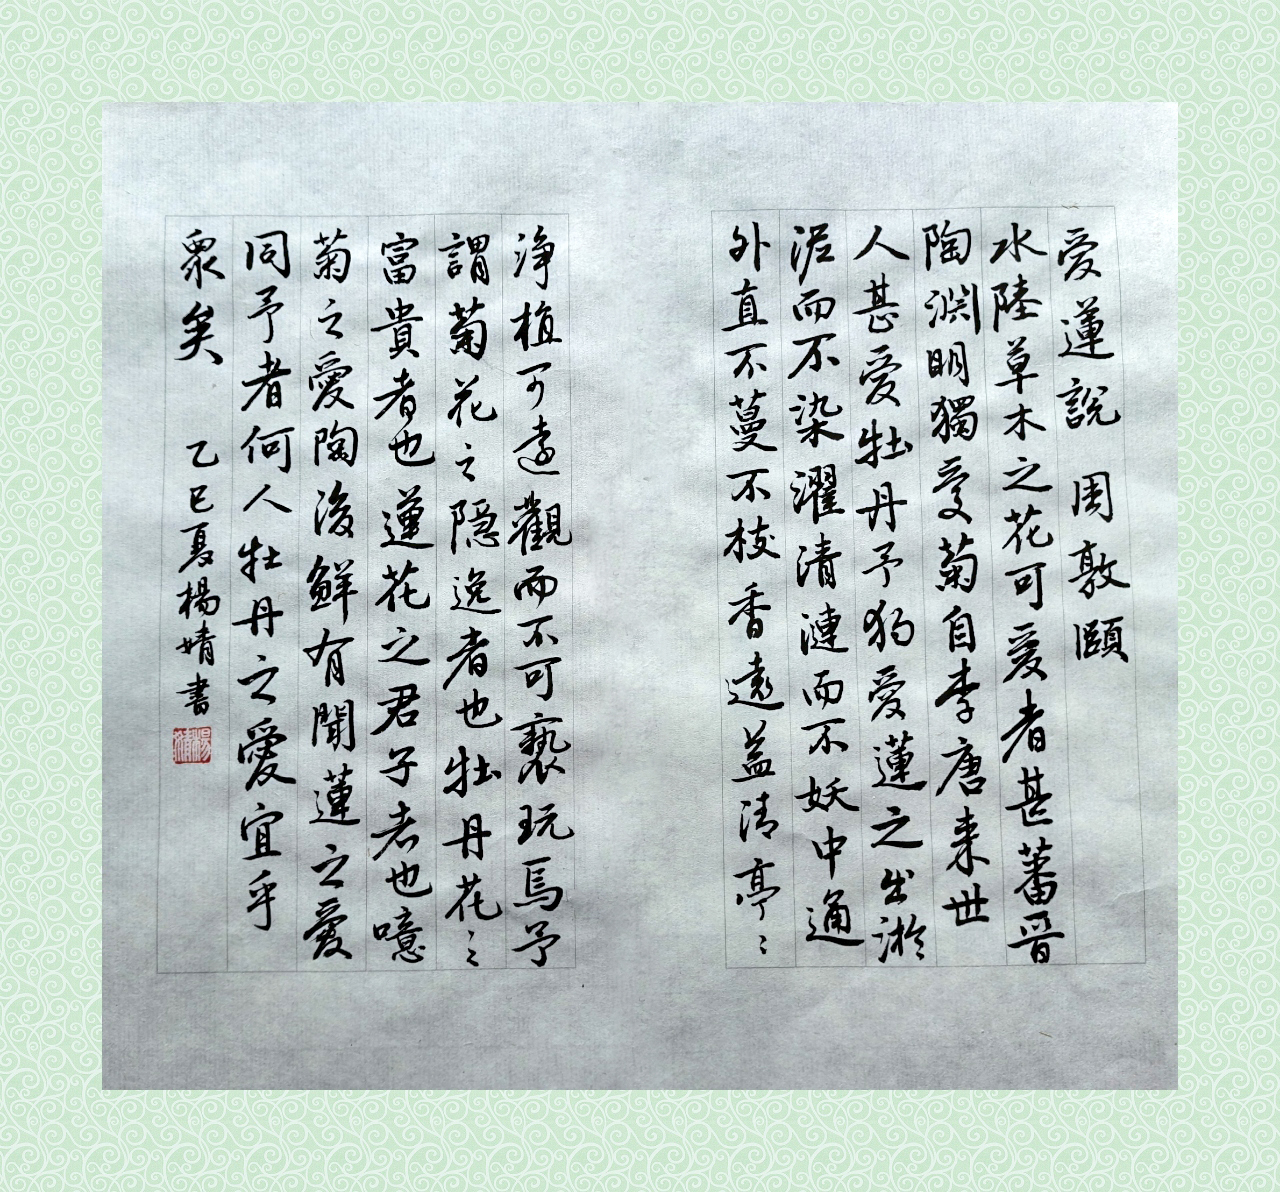 爱蓮說 周敦頤
水陸草木之花可爱者甚蕃晋
陶淵明獨爱菊自李唐来世
人甚爱牡丹予独爱蓮之出淤
泥而不染濯清漣而不妖中通
外直不蔓不枝香遠益清亭〻
淨植可遠觀而不可褻玩焉予
謂菊花之隱逸者也牡丹花〻
富貴者也蓮花之君子者也噫
菊之愛陶後鮮有聞蓮之愛
同予者何人牡丹之愛宜乎
眾矣 乙巳夏楊婧書
楊婧